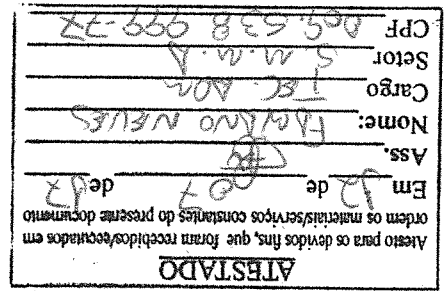 ATESTADO
Atesto para os devidos fins, que foram recebidos/executados em
ordem os materiais/serviços constantes do presente documento
Em 12 de 07 de 17
Ass.
Nome: FABIANO NIEUES
Cargo TEC. ADM
Setor S.M.M.A
CPF 009.638.999-77